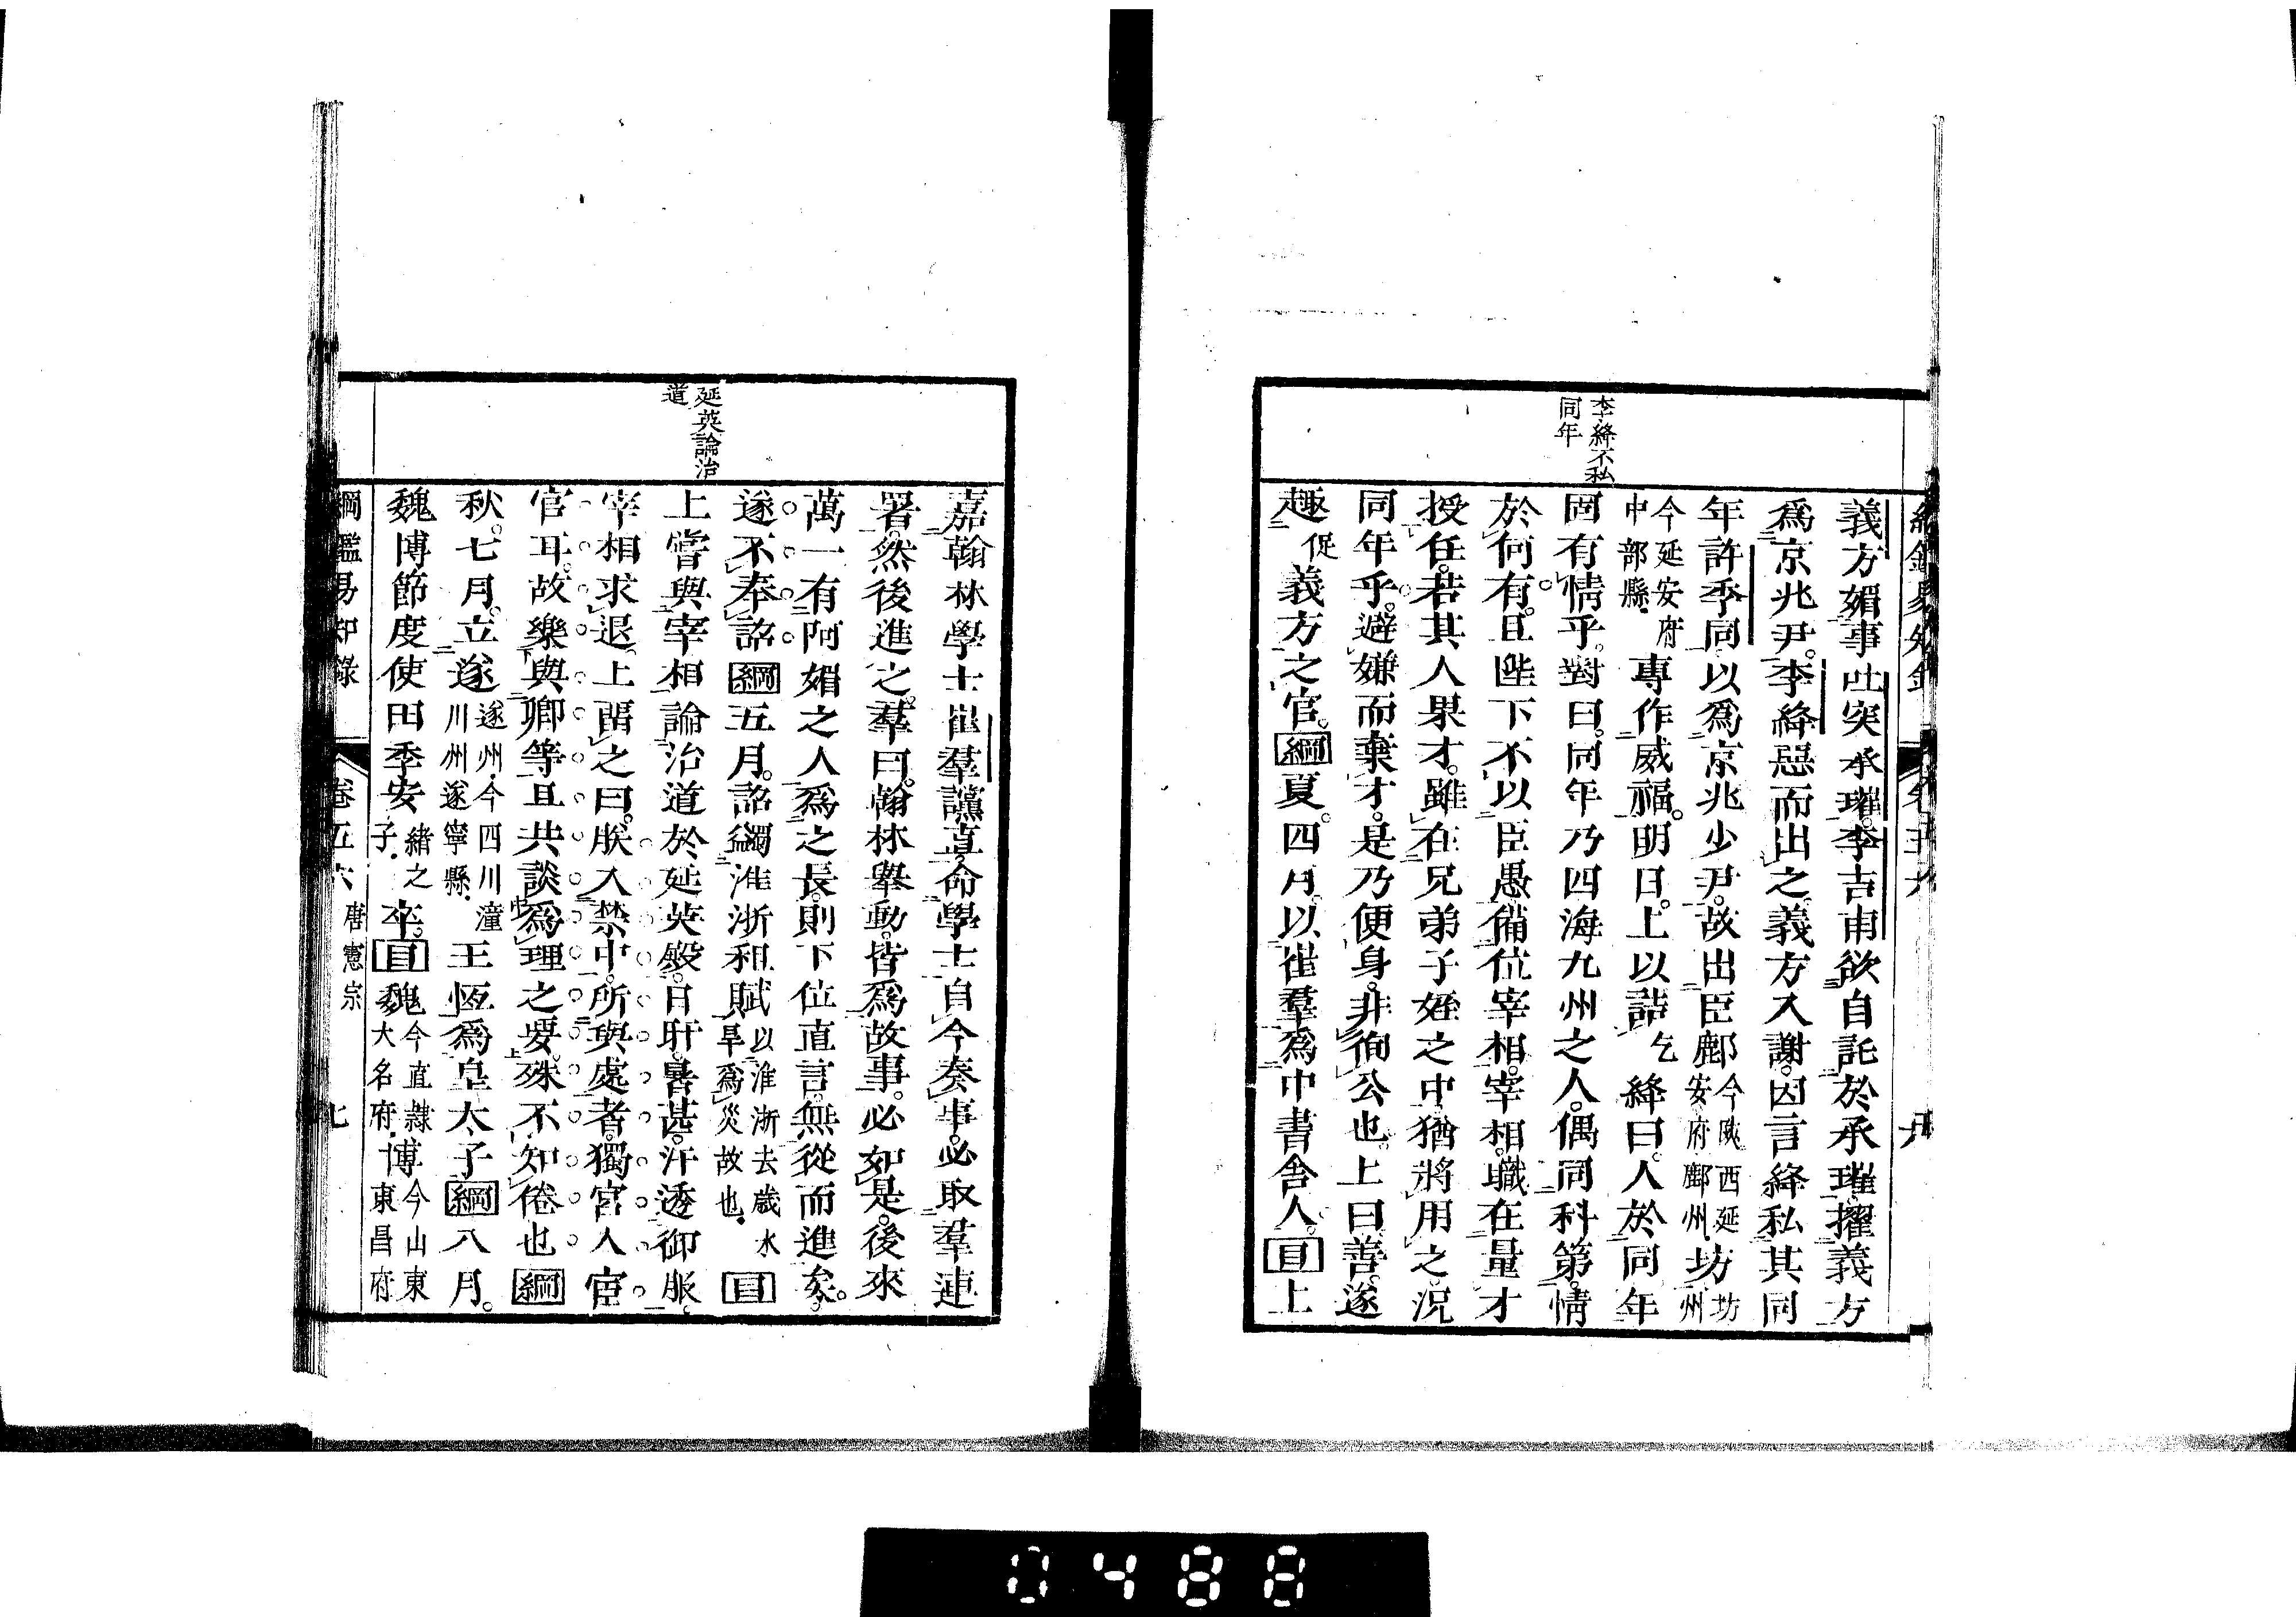 李絳不私
同年
義方媚事吐突承璀。李吉甫欲自託於承璀。擢義方
爲京兆尹。李絳惡而出之。義方入謝。因言絳私其同
年許季同。以爲京兆少尹。故出臣鄜今陝西延安府鄜州。坊坊州
今延安府中部縣。專作威福。明日。上以詰乞絳曰。人於同年
固有情乎。對曰。同年乃四海九州之人。偶同科第。情
於何有。且陛下不以臣愚。備位宰相。宰相職在量才
授任。若其人果才。雖在兄弟子姪之中猶將用之。況
同年乎。避嫌而棄才。是乃便身。非徇公也。上曰善。遂
趣促義方之官。綱夏。四月。以崔羣爲中書舍人。目上
延英論治
道
嘉翰林學士崔羣讜直。命學士自今奏事。必取羣連
署。然後進之。羣曰。翰林舉動。皆爲故事。必如是。後來
萬一有阿媚之人爲之長。則下位直言。無從而進矣。
遂不奉詔綱五月。詔蠲淮浙租賦以淮浙去歲水旱爲災故也。目
上嘗與宰相論治道於延英殿。日旰。暑甚。汗透御服。
宰相求退。上畱之曰。朕入禁中。所與處者。獨宮人宦
官耳。故樂與卿等且共談爲理之要。殊不知倦也綱
秋。七月。立遂遂州。今四川潼川州遂寧縣。王恆爲皇太子綱八月。
魏博節度使田季安緒之子。卒。目魏今直隸大名府。博今山東東昌府
綱鑑易知錄 卷五六 唐憲宗 七